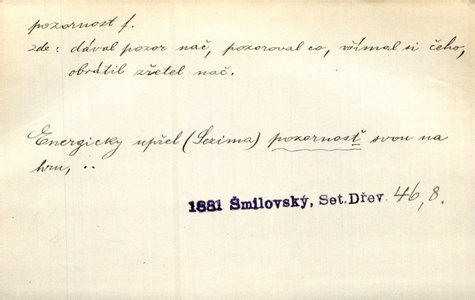 pozornost f.
zde: dával pozor nač, pozoroval co, všímal si čeho,
obrátil zřetel nač.
Energicky upřel (Sezima) pozornosť svou na
hru, ..
1881 Šmilovský, Set.Dřev. 46, 8.